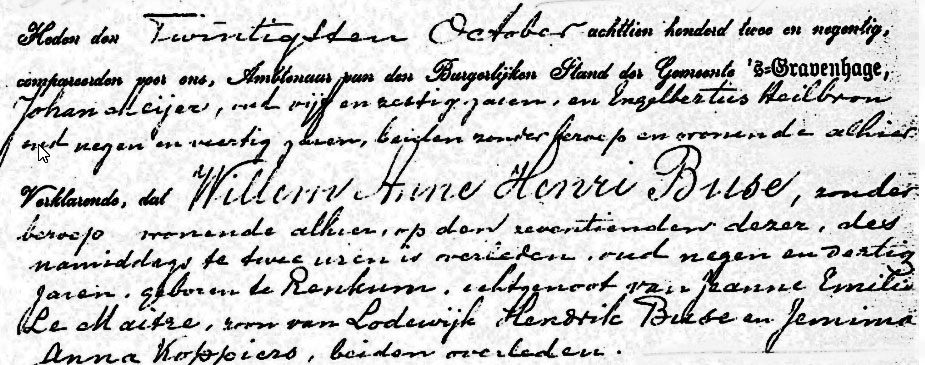 Heden den Twintigsten October achttien honderd twee en negentig,
compareerden voor ons, Ambtenaar van den Burgerlijken Stand der Gemeente 's-Gravenhage,
Johan Meijer, oud vijf en zestig jaren, en Engelbertus Heilbron
oud negen en veertig jaren, beiden zonder beroep en wonende alhier
Verklarende, dat Willem Anne Henri Buse, zonder
beroep wonende alhier, op den zeventienden dezer, des
namiddags te twee uren is overleden, oud negen en dertig
jaren, geboren te Renkum, echtgenoot van Jeanne Emilie
Le Maitre, zoon van Lodewijk Hendrik Buse en Jemima
Anna Koppiers, beiden overleden.